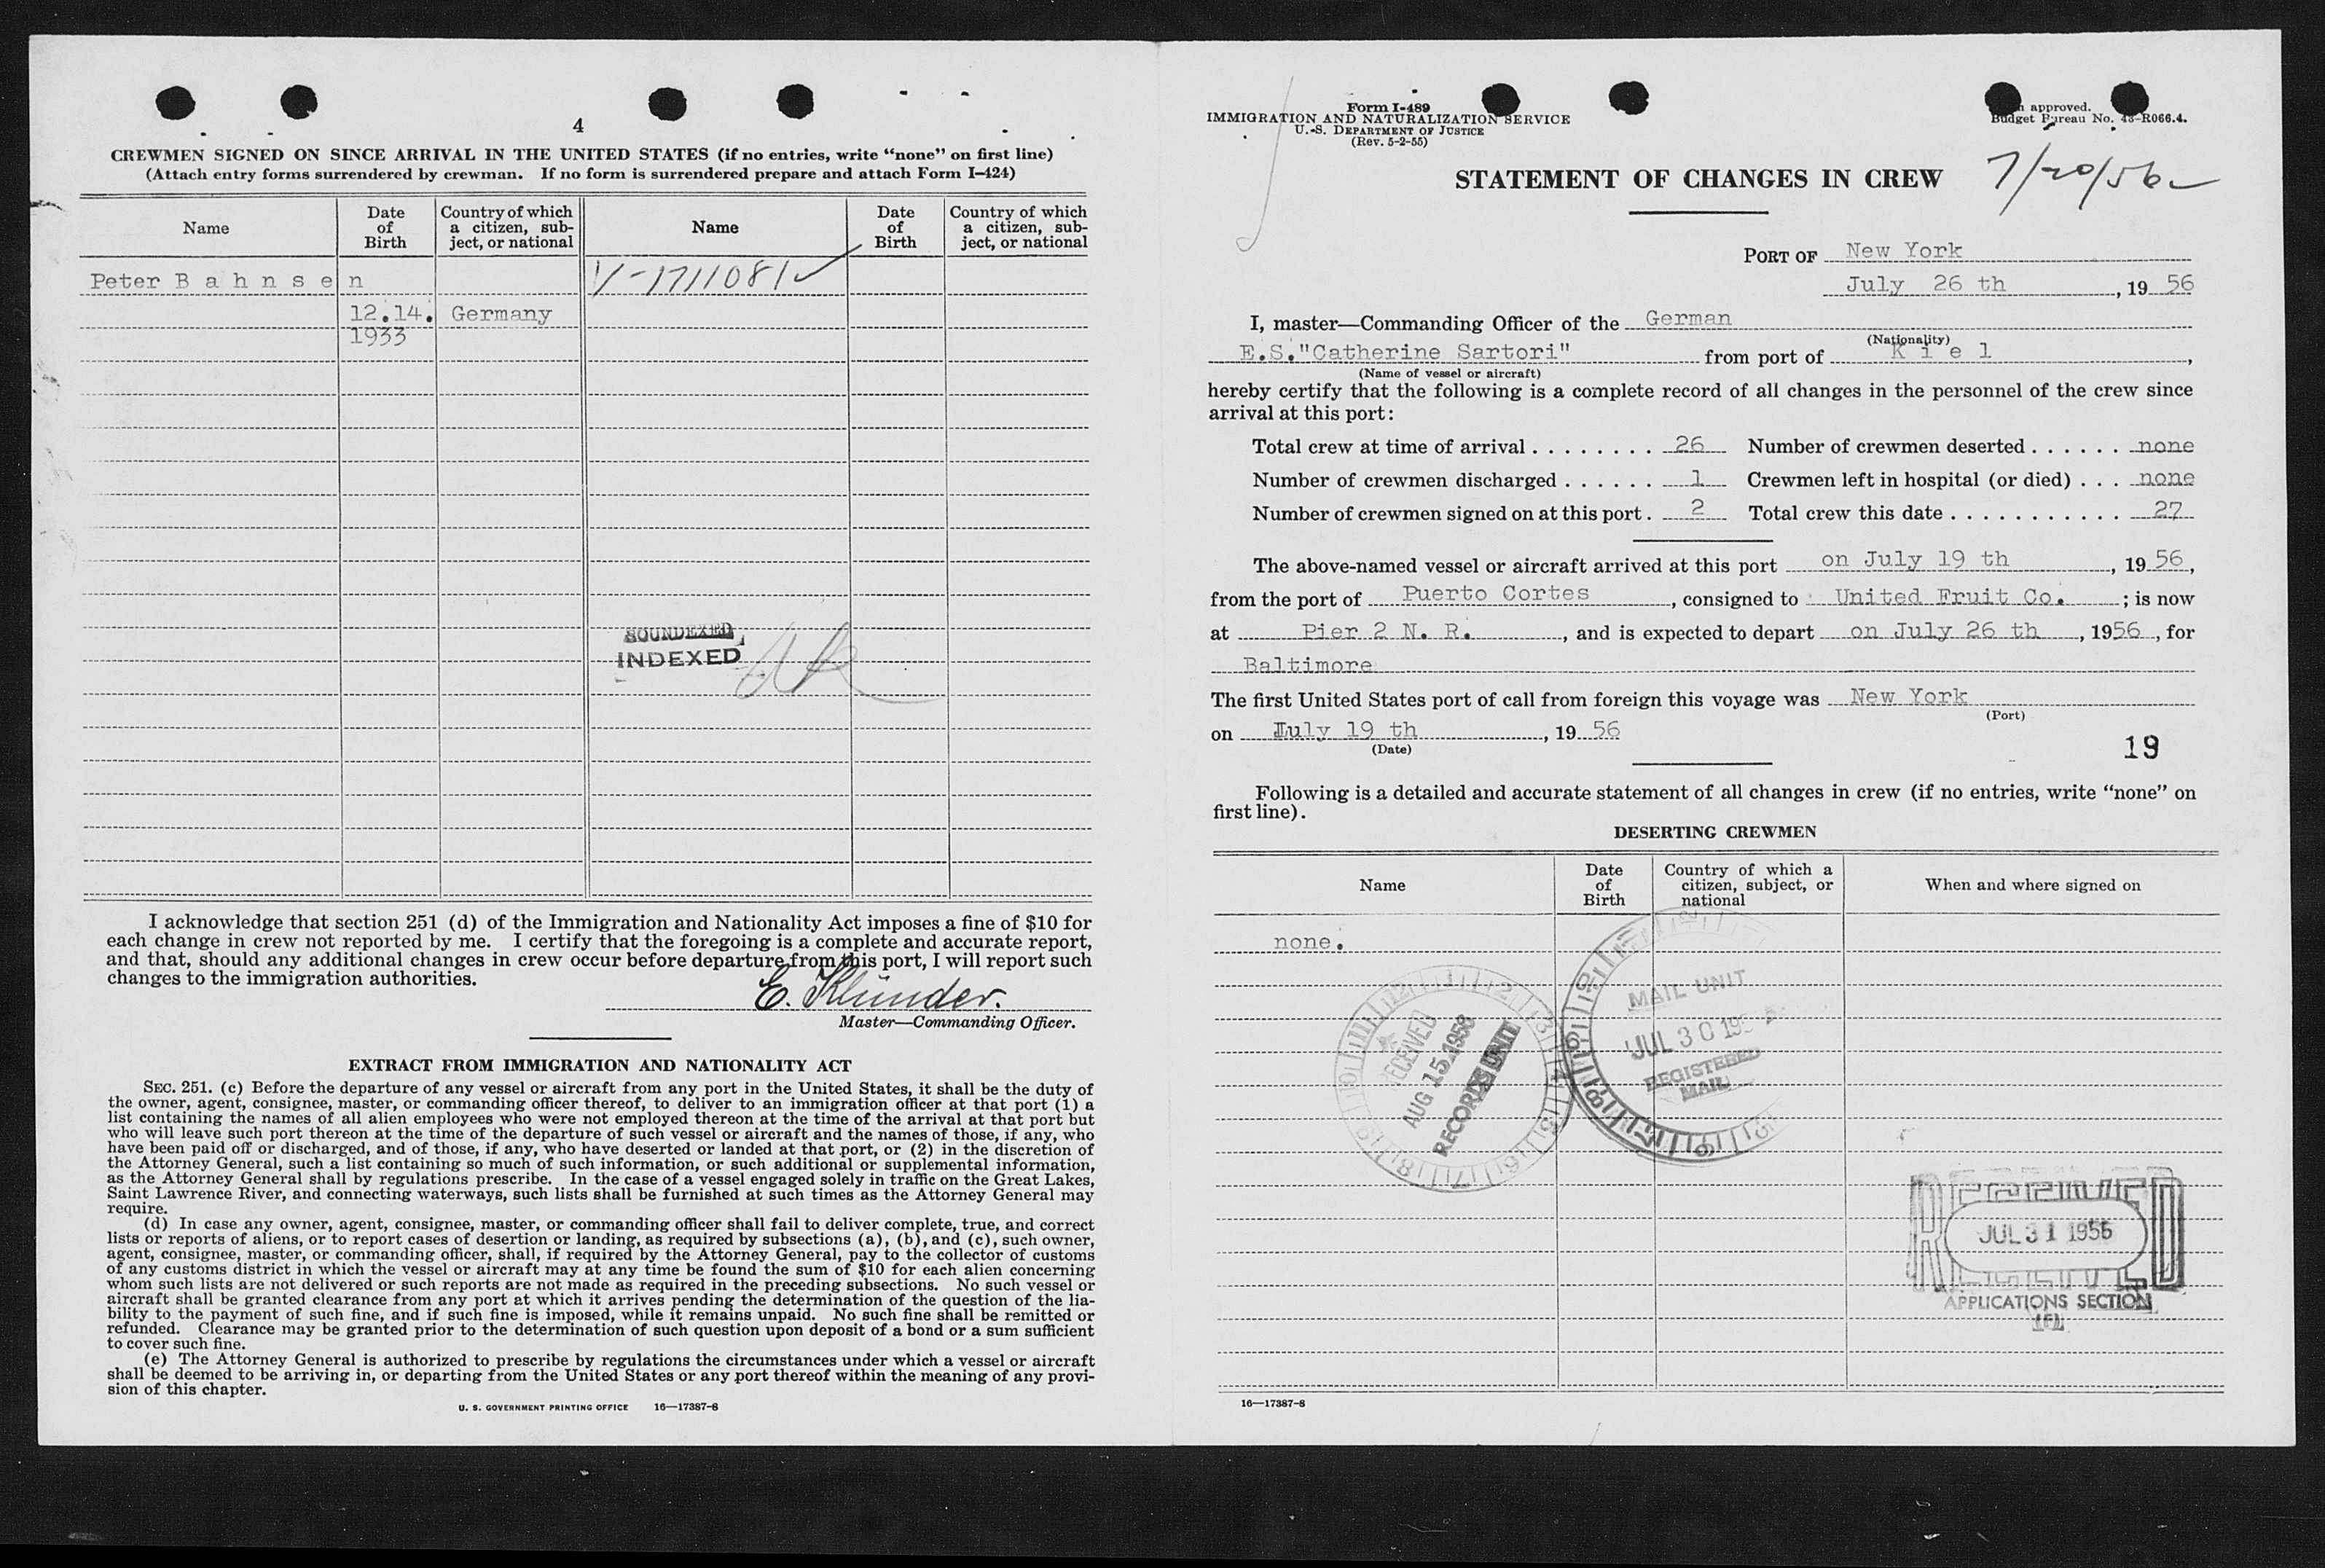 4
CREWMEN SIGNED ON SINCE ARRIVAL IN THE UNITED STATES (if no entries, write "none" on first line)
(Attach entry forms surrendered by crewman. If no form is surrendered prepare and attach Form I-424)
Name Date of Birth Country of which a citizen, subject, or national Name Date of Birth Country of which a citizen, subject, or national
Peter B a h n s e n V-1711081
12.14. Germany
1933
SOUNDEXED
INDEXED
I acknowledge that section 251 (d) of the Immigration and Nationality Act imposes a fine of $10 for
each change in crew not reported by me. I certify that the foregoing is a complete and accurate report,
and that, should any additional changes in crew occur before departure from this port, I will report such
changes to the immigration authorities.
E. Klünder.
Master—Commanding Officer.
EXTRACT FROM IMMIGRATION AND NATIONALITY ACT
SEC. 251. (c) Before the departure of any vessel or aircraft from any port in the United States, it shall be the duty of
the owner, agent, consignee, master, or commanding officer thereof, to deliver to an immigration officer at that port (1) a
list containing the names of all alien employees who were not employed thereon at the time of the arrival at that port but
who will leave such port thereon at the time of the departure of such vessel or aircraft and the names of those, if any, who
have been paid off or discharged, and of those, if any, who have deserted or landed at that port, or (2) in the discretion of
the Attorney General, such a list containing so much of such information, or such additional or supplemental information,
as the Attorney General shall by regulations prescribe. In the case of a vessel engaged solely in traffic on the Great Lakes,
Saint Lawrence River, and connecting waterways, such lists shall be furnished at such times as the Attorney General may
require.
(d) In case any owner, agent, consignee, master, or commanding officer shall fail to deliver complete, true, and correct
lists or reports of aliens, or to report cases of desertion or landing, as required by subsections (a), (b), and (c), such owner,
agent, consignee, master, or commanding officer, shall, if required by the Attorney General, pay to the collector of customs
of any customs district in which the vessel or aircraft may at any time be found the sum of $10 for each alien concerning
whom such lists are not delivered or such reports are not made as required in the preceding subsections. No such vessel or
aircraft shall be granted clearance from any port at which it arrives pending the determination of the question of the lia-
bility to the payment of such fine, and if such fine is imposed, while it remains unpaid. No such fine shall be remitted or
refunded. Clearance may be granted prior to the determination of such question upon deposit of a bond or a sum sufficient
to cover such fine.
(e) The Attorney General is authorized to prescribe by regulations the circumstances under which a vessel or aircraft
shall be deemed to be arriving in, or departing from the United States or any port thereof within the meaning of any provi-
sion of this chapter.
U. S. GOVERNMENT PRINTING OFFICE 16—17387-8
Form I-489
IMMIGRATION AND NATURALIZATION SERVICE
U. S. DEPARTMENT OF JUSTICE
(Rev. 5-2-55)
approved.
Budget Bureau No. 43-R066.4.
STATEMENT OF CHANGES IN CREW 7/20/56
PORT OF New York
July 26 th, 19 56
I, master—Commanding Officer of the German
(Nationality)
E.S."Catherine Sartori" from port of K i e l,
(Name of vessel or aircraft)
hereby certify that the following is a complete record of all changes in the personnel of the crew since
arrival at this port:
Total crew at time of arrival . . . . . . . . 26 Number of crewmen deserted . . . . . . none
Number of crewmen discharged . . . . . . 1 Crewmen left in hospital (or died) . . . none
Number of crewmen signed on at this port . 2 Total crew this date . . . . . . . . . . . 27
The above-named vessel or aircraft arrived at this port on July 19 th, 19 56,
from the port of Puerto Cortes, consigned to United Fruit Co. ; is now
at Pier 2 N. R., and is expected to depart on July 26 th, 1956, for
Baltimore
The first United States port of call from foreign this voyage was New York
(Port)
on July 19 th, 19 56
(Date)
19
Following is a detailed and accurate statement of all changes in crew (if no entries, write "none" on
first line).
DESERTING CREWMEN
Name Date of Birth Country of which a citizen, subject, or national When and where signed on
none.
RECEIVED
AUG 15 1958
RECORDS UNIT
MAIL UNIT
JUL 30 195
REGISTERED
MAIL
RECEIVED
JUL 31 1956
APPLICATIONS SECTION
16—17387-8